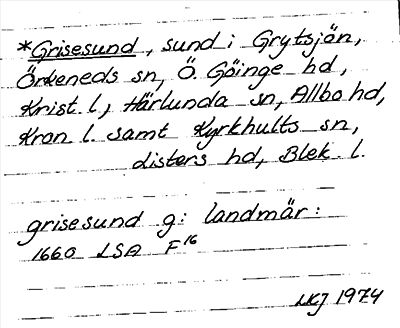 *Grisesund, sund i Grytsjön,
Örkeneds sn, Ö. Göinge hd,
Krist. l, Härlunda sn, Allbo hd,
Kron l. samt Kyrkhults sn,
Listers hd, Blek. l.
grisesund g: landmär:
1660 LSA F16
LKJ 1974